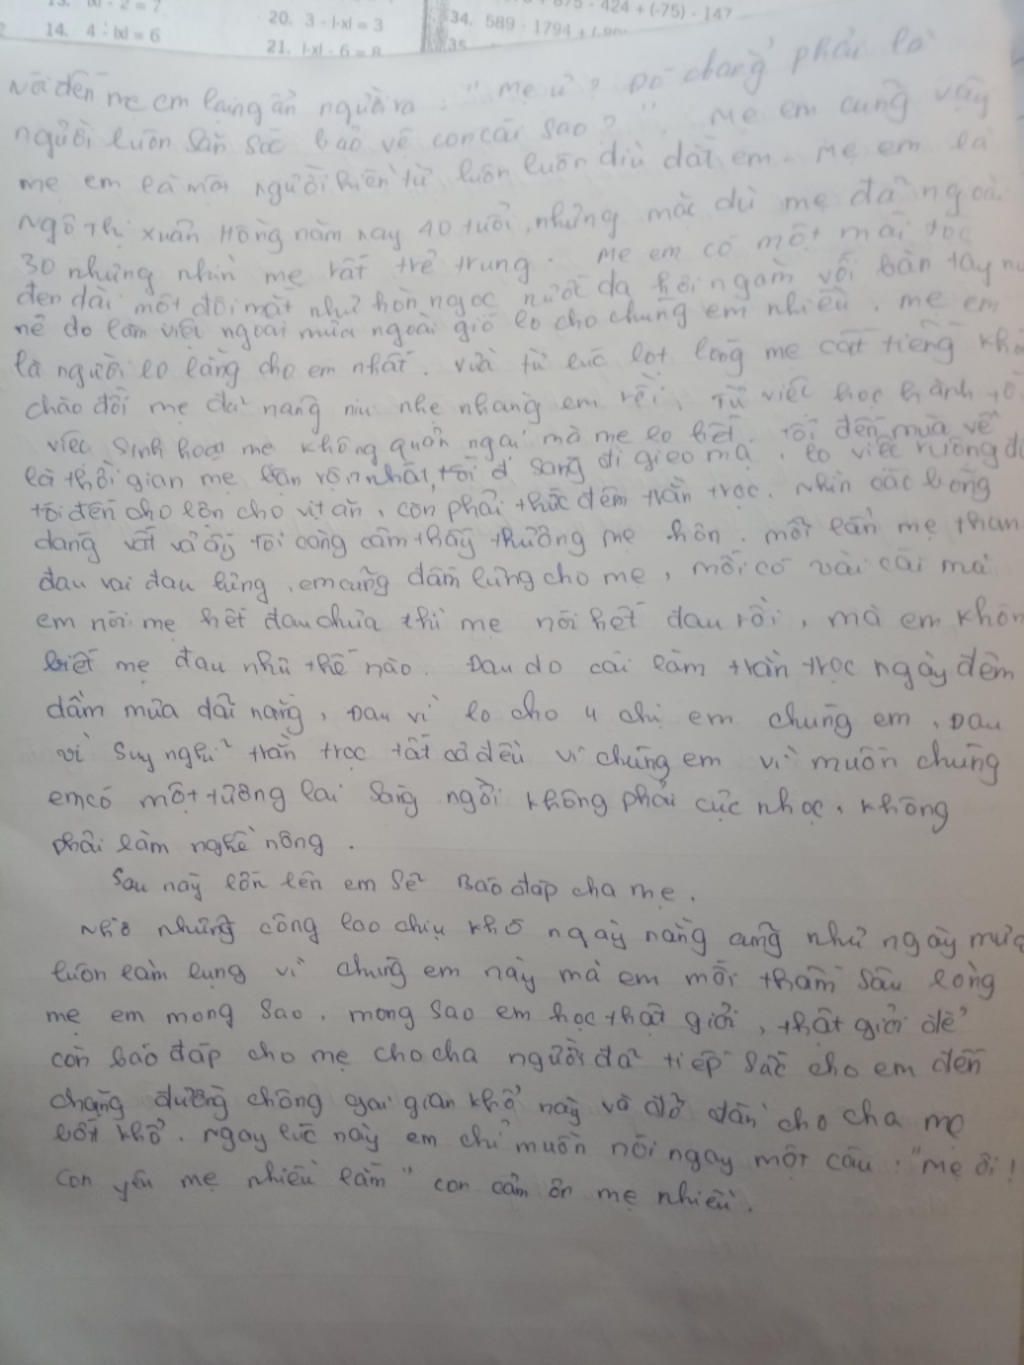 14. 4 : |x| = 6
20. 3 - |-x| = 3
21. |-x| - 6 = 8
34. 589 - 1794 +
35
Nói đến mẹ em lại ngẩn người ra: "Mẹ ư? Đó chẳng phải là
người luôn săn sóc bảo vệ con cái sao?". Mẹ em cũng vậy
mẹ em là một người hiền từ luôn luôn dìu dắt em. Mẹ em là
Ngô Thị Xuân Hồng năm nay 40 tuổi, nhưng mặc dù mẹ đã ngoài
30 nhưng nhìn mẹ rất trẻ trung. Mẹ em có một mái tóc
đen dài một đôi mắt như hòn ngọc nước da hơi ngăm với bàn tay
nề do làm việc ngoài mưa ngoài gió lo cho chúng em nhiều. Mẹ em
là người lo lắng cho em nhất. Vừa từ lúc lọt lòng mẹ cất tiếng
chào đời mẹ đã nâng niu nhẹ nhàng em rồi. Từ việc học hành
việc sinh hoạt mẹ không quản ngại mà mẹ lo hết. Tới đến mùa về
là thời gian mẹ bận rộn nhất, tối ở sáng đi gieo mạ, lo việc ruộng
tối đến cho lợn cho vịt ăn, còn phải thức đêm trằn trọc. Nhìn các bóng
dáng vất vả ấy tôi càng cảm thấy thương mẹ hơn. Mỗi lần mẹ than
đau vai đau lưng, em cũng đấm lưng cho mẹ, mới có vài cái mà
em nói mẹ hết đau chưa thì mẹ nói hết đau rồi, mà em khôn
biết mẹ đau như thế nào. Đau do cái làm trằn trọc ngày đêm
dầm mưa dãi nắng, Đau vì lo cho 4 chị em chúng em, Đau
vì suy nghĩ trằn trọc tất cả đều vì chúng em vì muốn chúng
em có một tương lai sáng ngời không phải cực nhọc, không
phải làm nghề nông.
Sau này lớn lên em sẽ Báo đáp cha mẹ.
Nhờ những công lao chịu khó ngày nắng cũng như ngày mưa
luôn làm lụng vì chúng em này mà em mới thấm sâu lòng
mẹ em mong sao, mong sao em học thật giỏi, thật giỏi để
còn báo đáp cho mẹ cho cha người đã tiếp sức cho em đến
chặng đường chông gai gian khổ này và đỡ đần cho cha mẹ
bớt khổ. Ngay lúc này em chỉ muốn nói ngay một câu: "Mẹ ơi!
con yêu mẹ nhiều lắm" con cảm ơn mẹ nhiều.